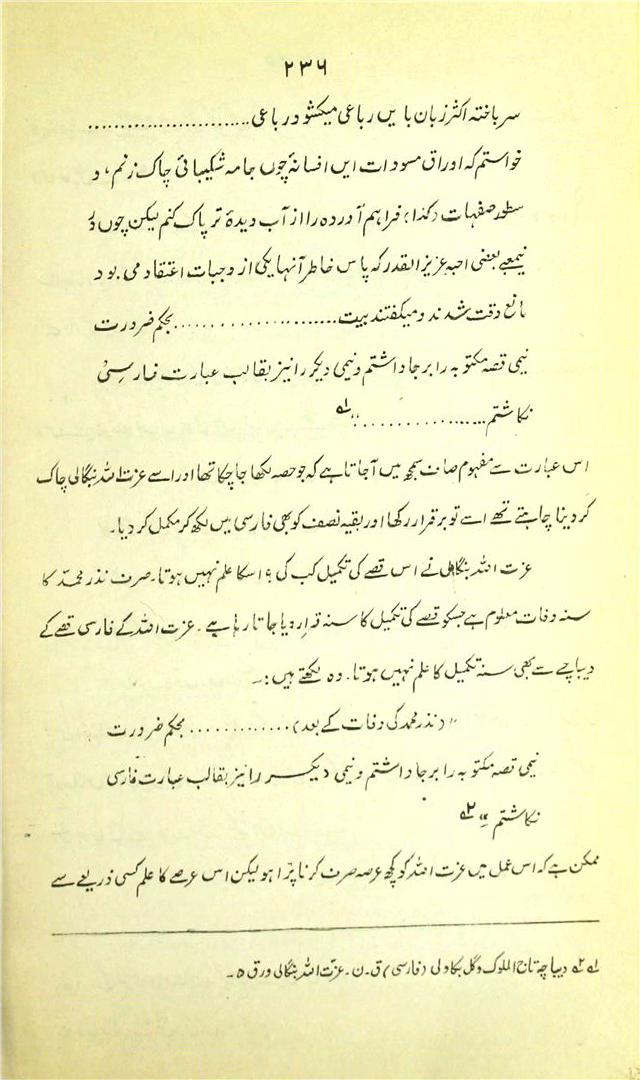 ۲۳۶
سر باختہ اکثر زبان بایں رباعی میکشود رباعی.........................
خواستم کہ اوراق مسودات ایں افسانۂ چوں جامہ شکیبائی چاک زنم، و
سطور صفہات (کذا) فراہم آوردہ را از آب دیدۂ تر پاک کنم لیکن چوں دُر
نیمعے بعضی احبہ عزیز القدر کہ پاس خاطر آنہا یکی از وجبات اعتقاد می بود
مانع وقت شدند و میگفتند بیت.........................بحکم ضرورت
نیمی قصہ مکتوبہ را برجا داشتم و نیمی دیگر را نیز بقالب عبارت فارسی
نگاشتم................،، ۱؎
اس عبارت سے مفہوم صاف سمجھ میں آجاتا ہے کہ جو حصہ لکھا جا چکا تھا اور اسے عزت اللہ بنگالی چاک
کر دینا چاہتے تھے اسے تو برقرار رکھا اور بقیہ نصف کو بھی فارسی میں لکھ کر مکمل کر دیا۔
عزت اللہ بنگالی نے اس قصے کی تکمیل کب کی ؟ اسکا علم نہیں ہوتا۔ صرف نذر محمد کا
سنہ وفات معلوم ہے جسکو قصے کی تکمیل کا سنہ قرار دیا جاتا رہا ہے۔ عزت اللہ کے فارسی قصے کے
دیباچے سے بھی سنہ تکمیل کا علم نہیں ہوتا۔ وہ لکھتے ہیں :۔
"(نذر محمد کی وفات کے بعد).............بحکم ضرورت
نیمی قصہ مکتوبہ را برجا داشتم و نیمی دیگر را نیز بقالب عبارت فارسی
نگاشتم" ۲؎
ممکن ہے کہ اس عمل میں عزت اللہ کو کچھ عرصہ صرف کرنا پڑا ہو لیکن اس عرصے کا علم کسی ذریعے سے
۱؎ ۲؎ دیباچہ تاج الملوک و گل بکاولی (فارسی) ق۔ن۔ عزت اللہ بنگالی ورق ۵۔